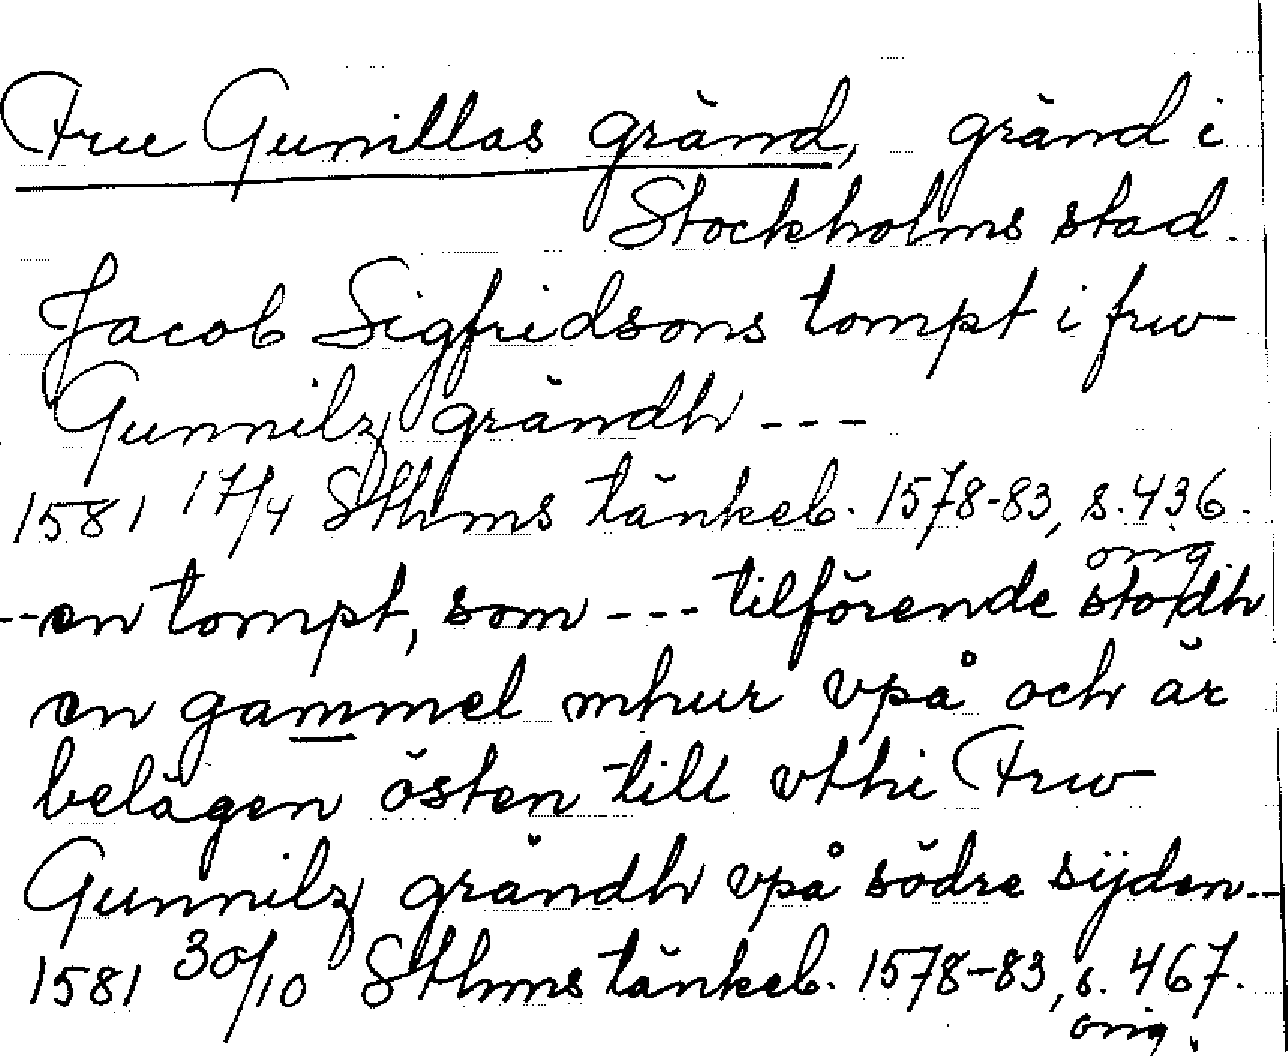 Frue Gunillas gränd, gränd i
Stockholms stad.
Jacob Sigfridsons tompt i frw
Gunnilz grändh ---
1581 17/4 Sthms tänkeb. 1578-83, s. 436.
orig.
--en tompt, som --- tilförende stodh
en gammel mhur vpå och är
belägen östen till vthi Frw
Gunnilz grändh vpå södre sijden--
1581 30/10 Sthms tänkeb. 1578-83, s. 467.
orig.